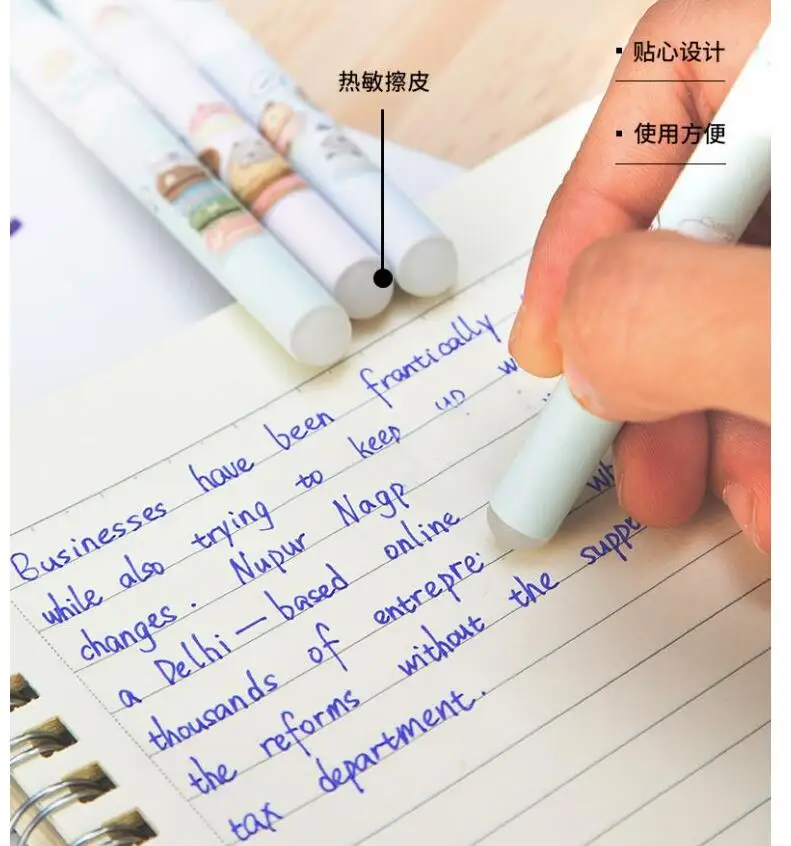 热敏擦皮
贴心设计
使用方便
Businesses have been frantically
while also trying to keep up w
changes. Nupur Nagp
a Delhi-based online wh
thousands of entrepre
the reforms without the suppo
tax department.